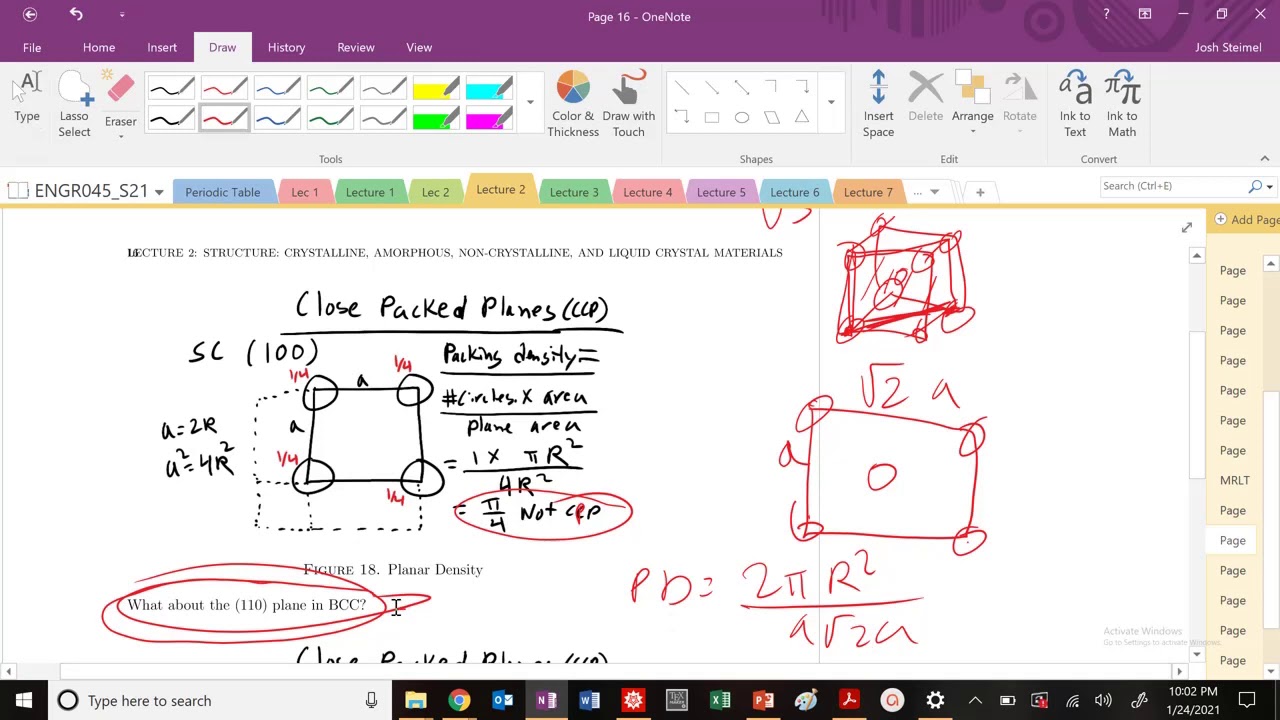 Page 16 - OneNote
Josh Steimel
File Home Insert Draw History Review View
Type
Lasso Select
Eraser
Color & Thickness
Draw with Touch
Insert Space
Delete
Arrange
Rotate
Ink to Text
Ink to Math
Tools
Shapes
Edit
Convert
ENGR045_S21
Periodic Table
Lec 1
Lecture 1
Lec 2
Lecture 2
Lecture 3
Lecture 4
Lecture 5
Lecture 6
Lecture 7
...
Search (Ctrl+E)
Add Page
Page
Page
Page
Page
Page
Page
Page
MRLT
Page
Page
Page
Page
Page
Page
LECTURE 2: STRUCTURE: CRYSTALLINE, AMORPHOUS, NON-CRYSTALLINE, AND LIQUID CRYSTAL MATERIALS
Close Packed Planes (CCP)
SC (100)
1/4
1/4
a
a
a=2R
a²=4R²
1/4
1/4
Packing density=
#circles × area
plane area
= 1 × πR²
4R²
= π/4 Not CCP
FIGURE 18. Planar Density
What about the (110) plane in BCC?
Close Packed Planes (CCP)
√3
√2 a
a
PD = 2πR²
a√2a
Activate Windows
Go to Settings to activate Windows.
Type here to search
10:02 PM
1/24/2021